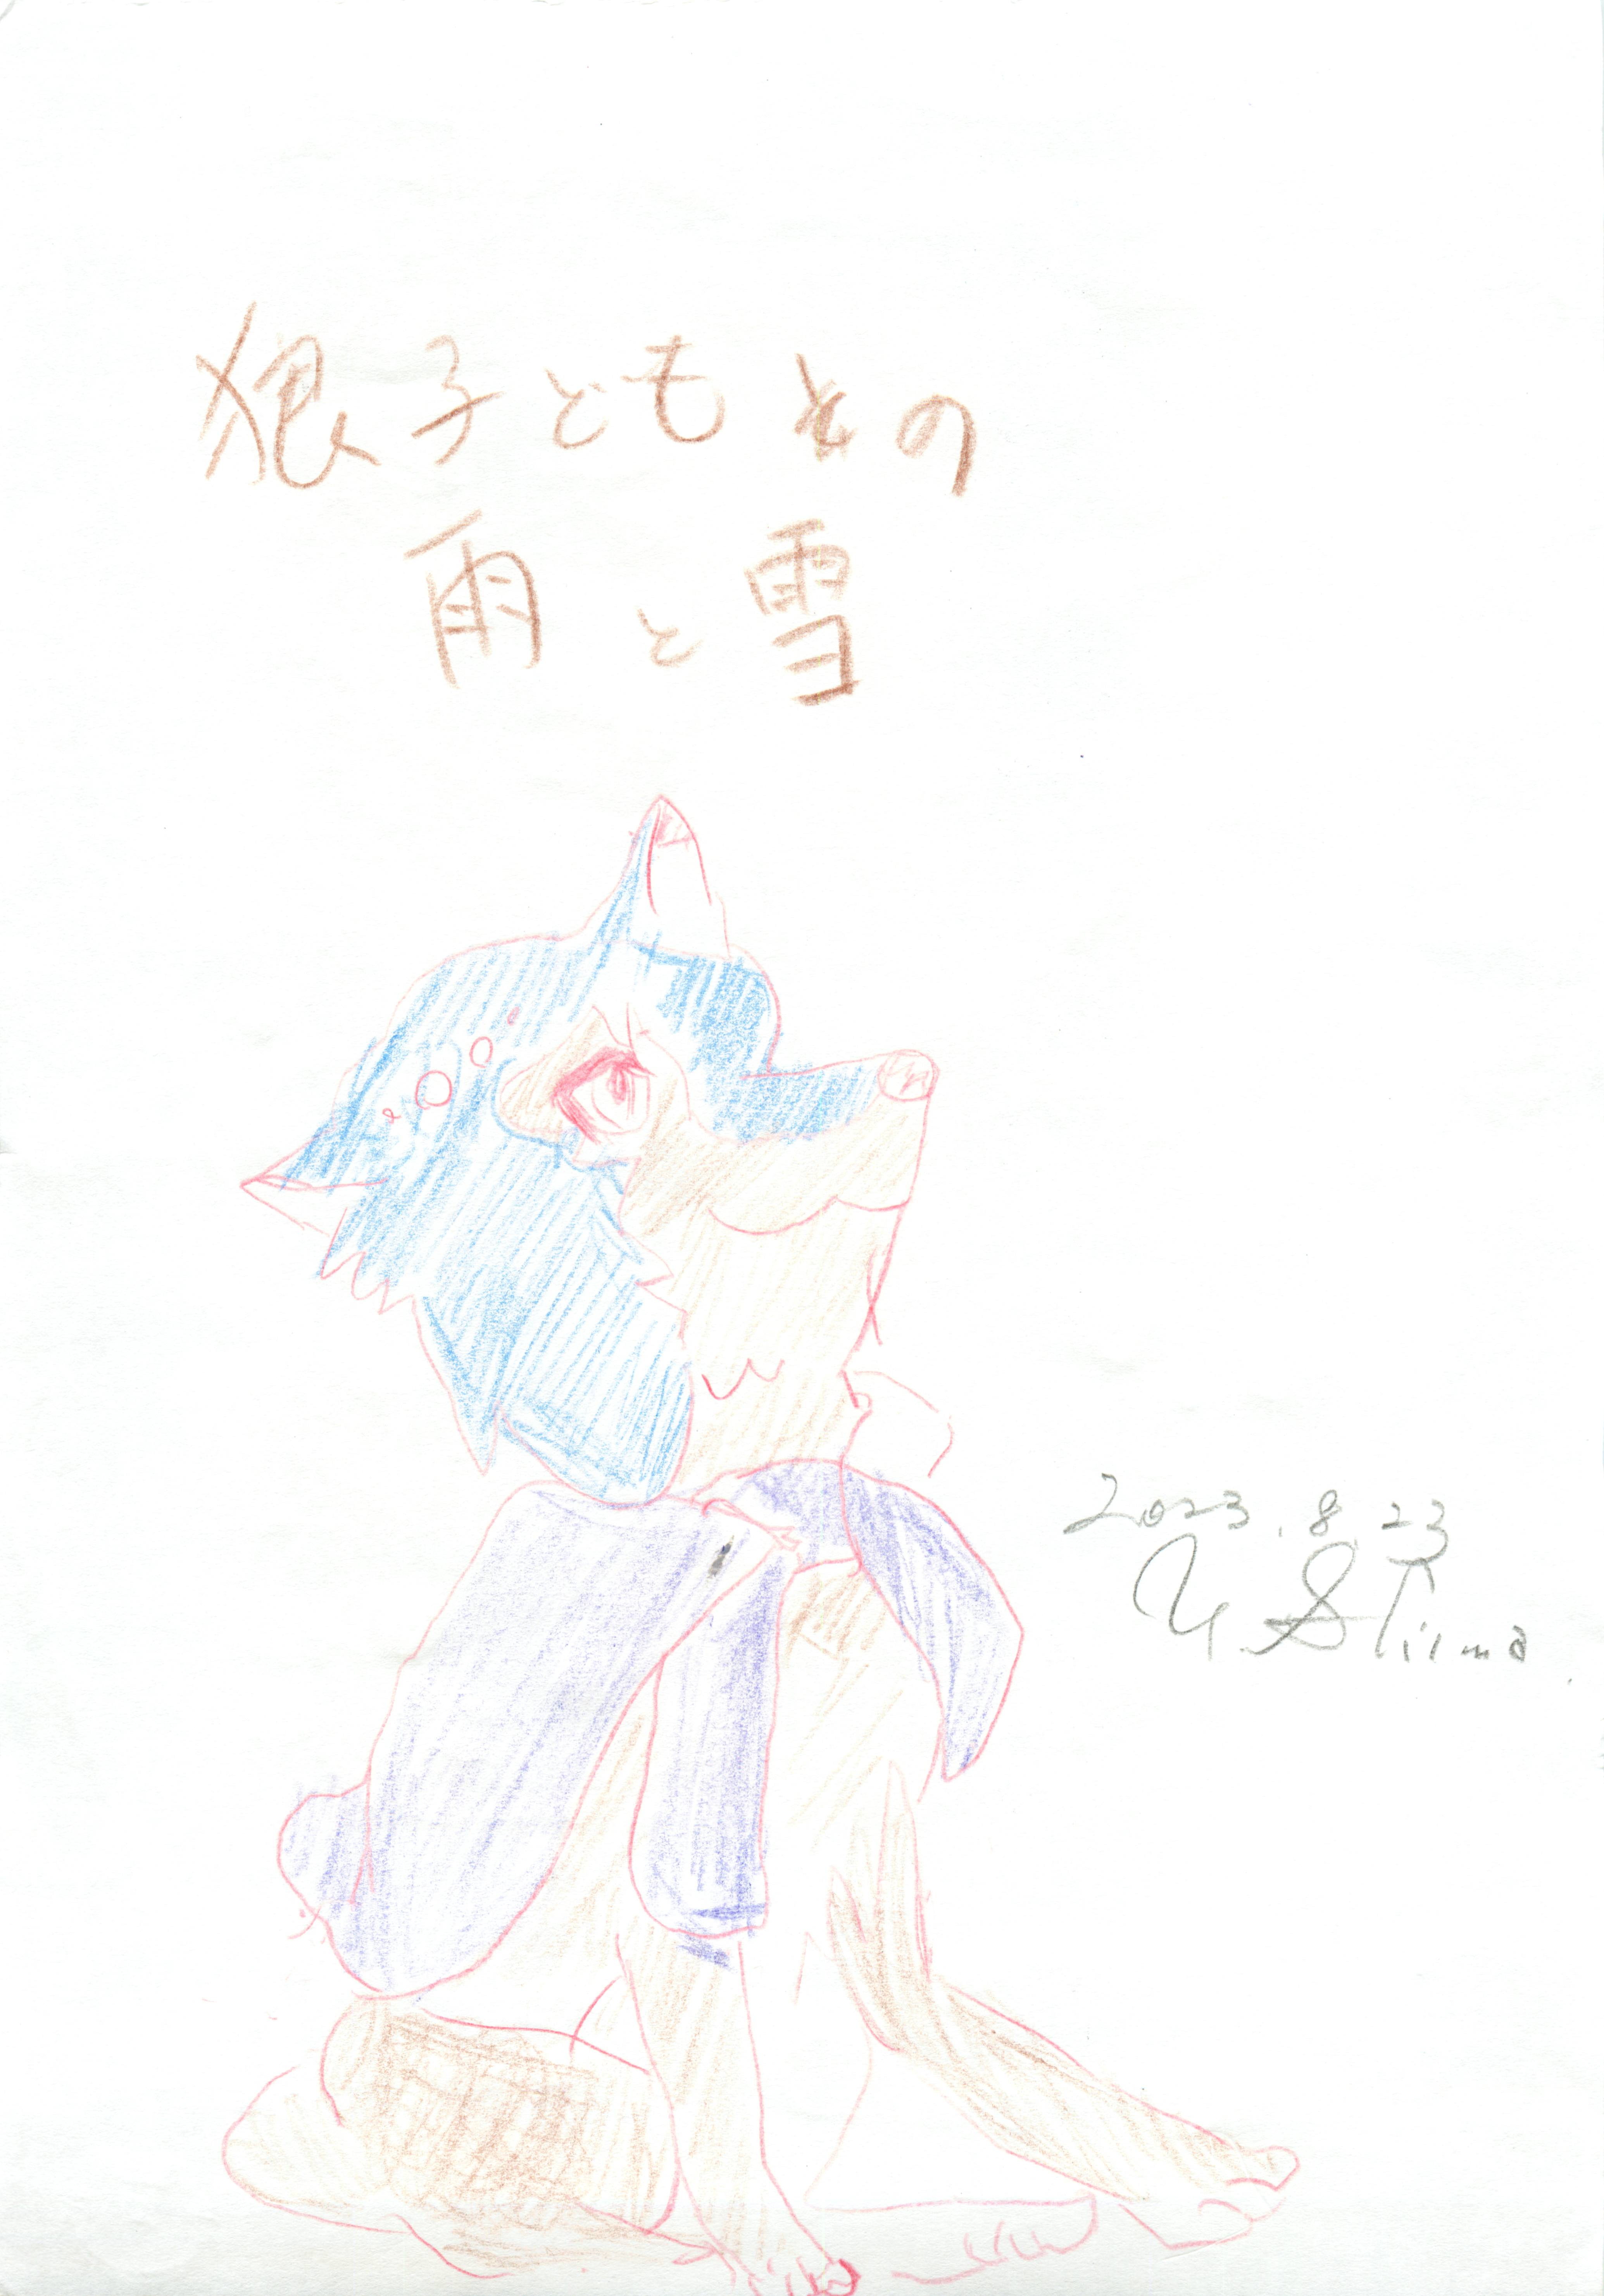 狼子どもの
雨と雪
2023.8.23